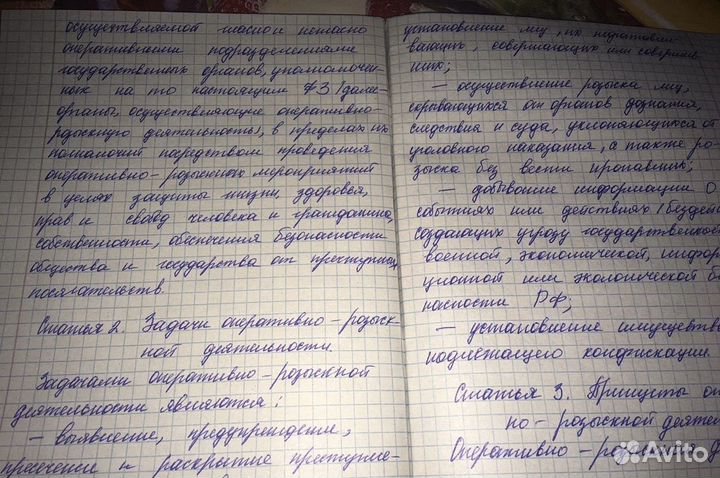 осуществляемой гласно и негласно
оперативными подразделениями
государственных органов, уполномочен-
ных на то настоящим ФЗ (далее-
органы, осуществляющие оперативно-
розыскную деятельность), в пределах их
полномочий посредством проведения
оперативно-розыскных мероприятий
в целях защиты жизни, здоровья,
прав и свобод человека и гражданина,
собственности, обеспечения безопасности
общества и государства от преступных
посягательств.
Статья 2 Задачи оперативно-розыск-
ной деятельности.
Задачами оперативно-розыскной
деятельности являются:
- выявление, предупреждение,
пресечение и раскрытие преступле-
установление лиц, их подготавли
вающих, совершающих или соверш
ших;
- осуществление розыска лиц,
скрывающихся от органов дознания,
следствия и суда, уклоняющихся от
уголовного наказания, а также ро-
зыска без вести пропавших;
- добывание информации о
событиях или действиях (бездей
создающих угрозу государственной
военной, экономической, инфор
ционной или экологической бе
пасности РФ;
- установление имущества
подлежащего конфискации.
Статья 3. Принципы оп
но-розыскной деятел
Оперативно-розыскная д
Avito